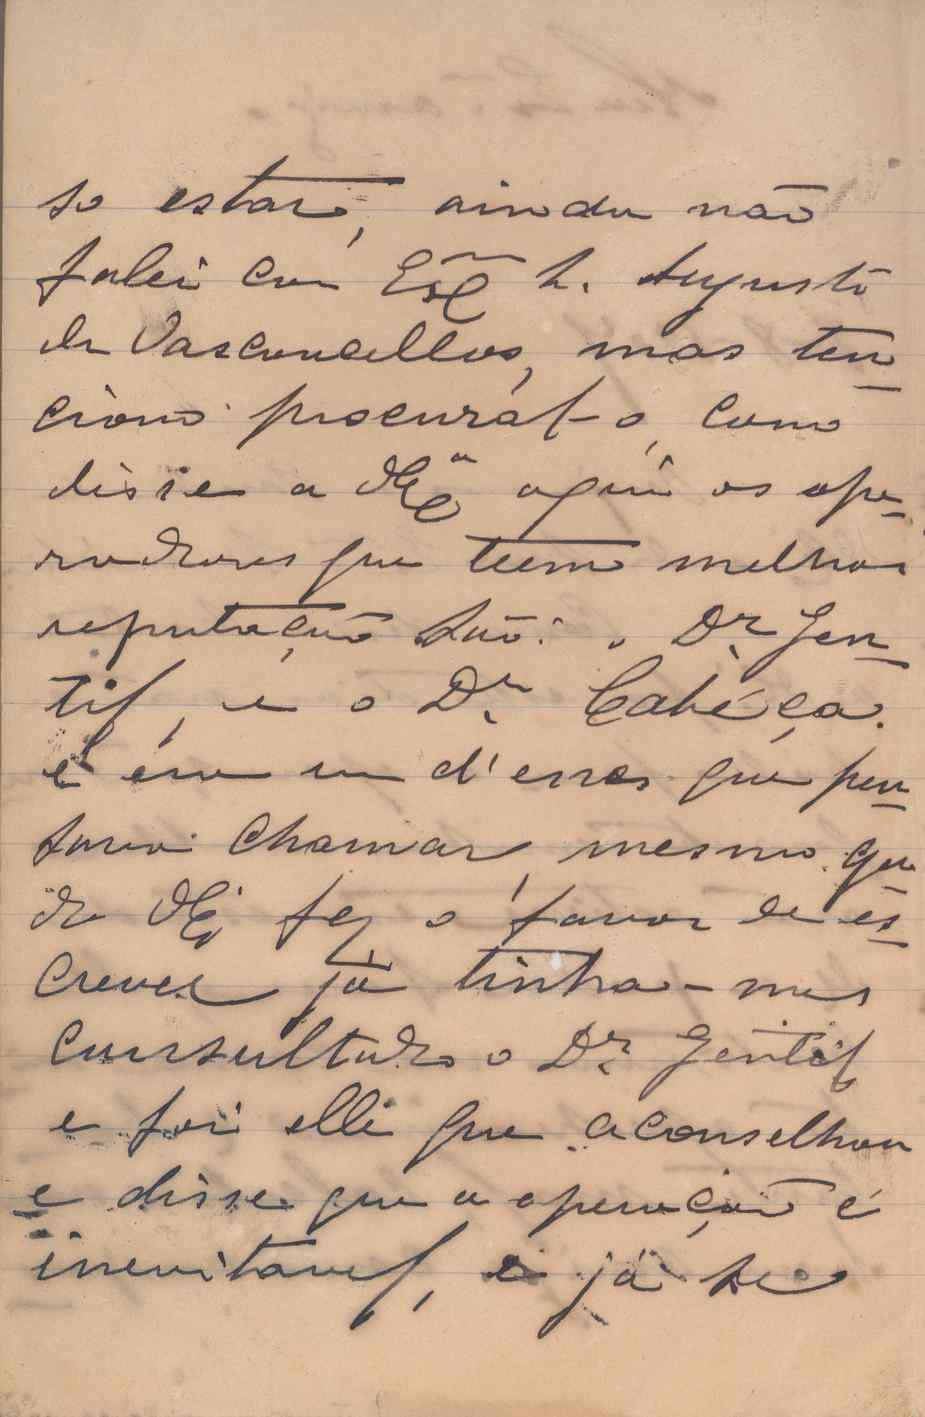 so estar, ainda não
falei com Exmº S. Augusto
de Vasconcellos, mas ten
ciono procural-o, como
disse a V. Exª aqui os ope-
radores que teem melhor
reputação são: o Dr. Gen-
til, e o Dr. Cabéça.
e era um d'esses que pen
sava chamar, mesmo qu
do V. Ex. fez o favor de es
crever já tinha-mos
consultado o Dr. Gentil
e foi elle que aconselhou
e disse que a operação é
inevitavel, e já se